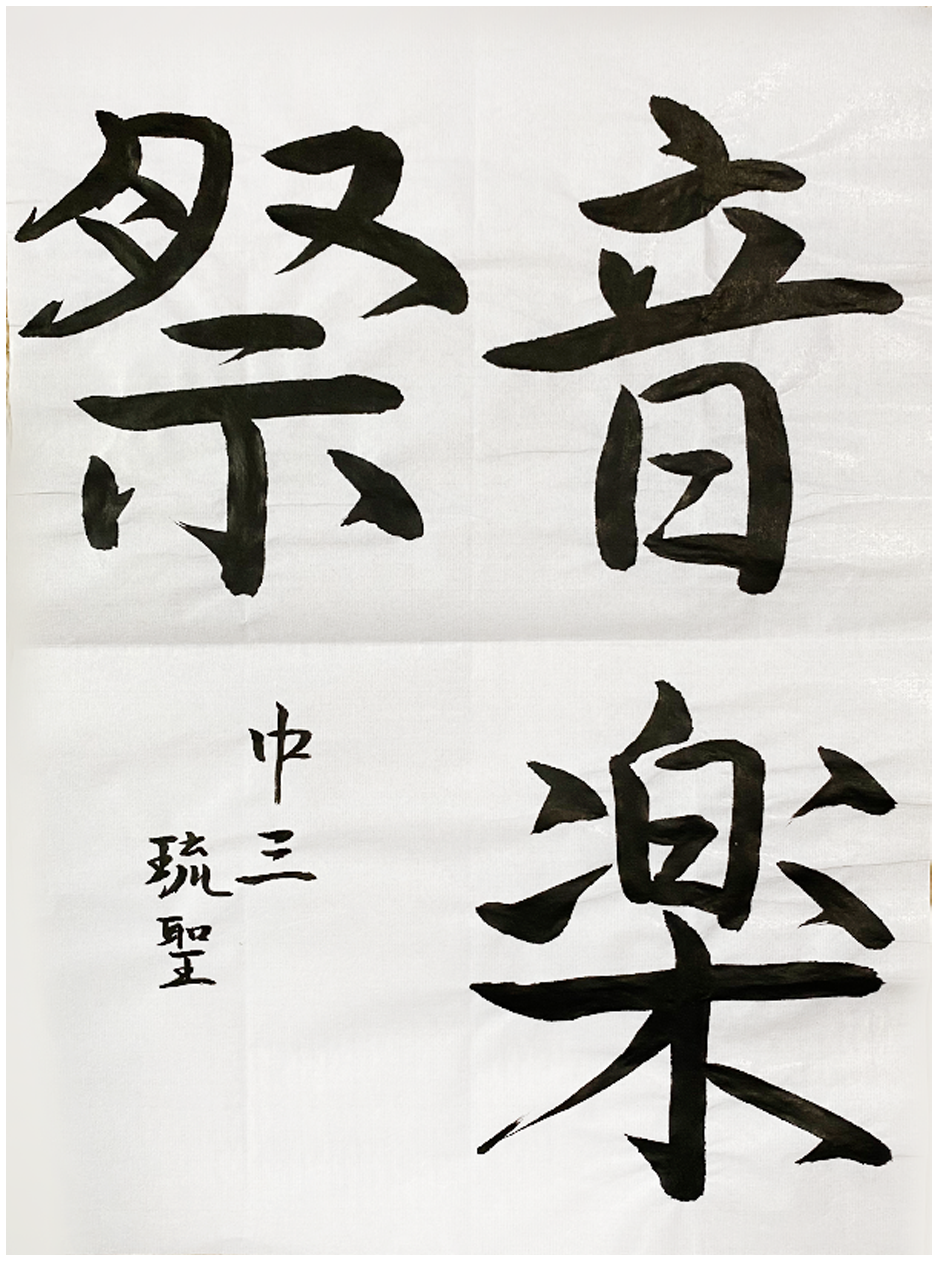 音楽
祭
中三
琉聖